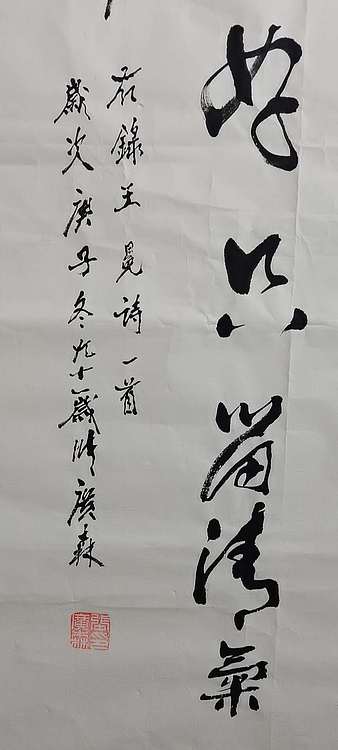 好只留清氣
右錄王冕詩一首
歲次庚子冬九十歲張廣森